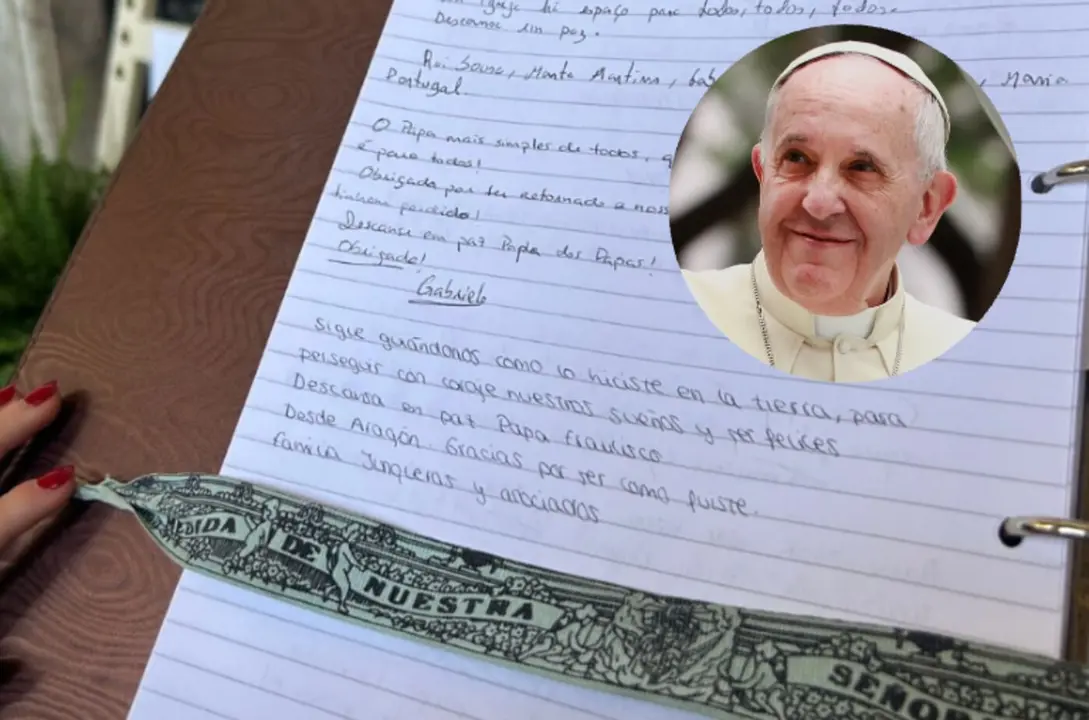 há espaço para todos, todos, todos.
Descanse em paz.
Rui Sousa, Marta Martins, Maria
Portugal.
O Papa mais simples de todos,
é para todos!
Obrigada por ter retornado a
tinham perdido!
Descanse em paz Papa dos Papas!
Obrigado!
Gabriela
sigue guiándonos como lo hiciste en la tierra, para
perseguir con coraje nuestros sueños y ser felices
Descansa en paz Papa Francisco
Desde Aragón. Gracias por ser como fuiste.
familia Junqueras y asociados
MEDIDA DE NUESTRA SEÑO